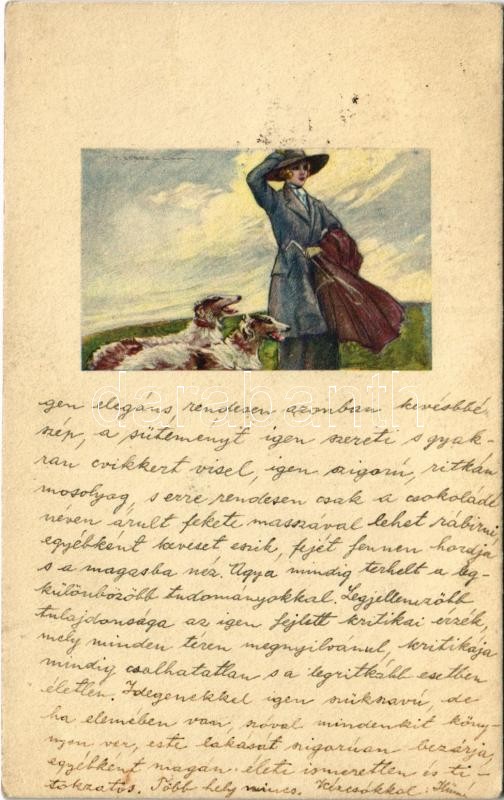 gen elegáns, rendesen azonban kevésbbé
szép, a süteményt igen szereti s gyak-
ran cvikkert visel, igen szigorú, ritkán
mosolyog, s erre rendesen csak a csokoládé
néven árult fekete masszával lehet rábirni,
egyébként keveset eszik, fejét fennen hordja
s a magasba néz. Agya mindig terhelt a leg-
különbözőbb tudományokkal. Legjellemzőbb
tulajdonsága az igen fejlett kritikai érzék,
mely minden téren megnyilvánul, kritikája
mindig csalhatatlan s a legritkább esetben
életlen. Idegenekkel igen szükszavú, de
ha elemében van, szóval mindenkit köny-
nyen ver, este lakását szigorúan bezárja,
egyébként magán-élete ismeretlen és ti-
tokzatos. Több hely nincs. Kézcsókkal:
darabanth